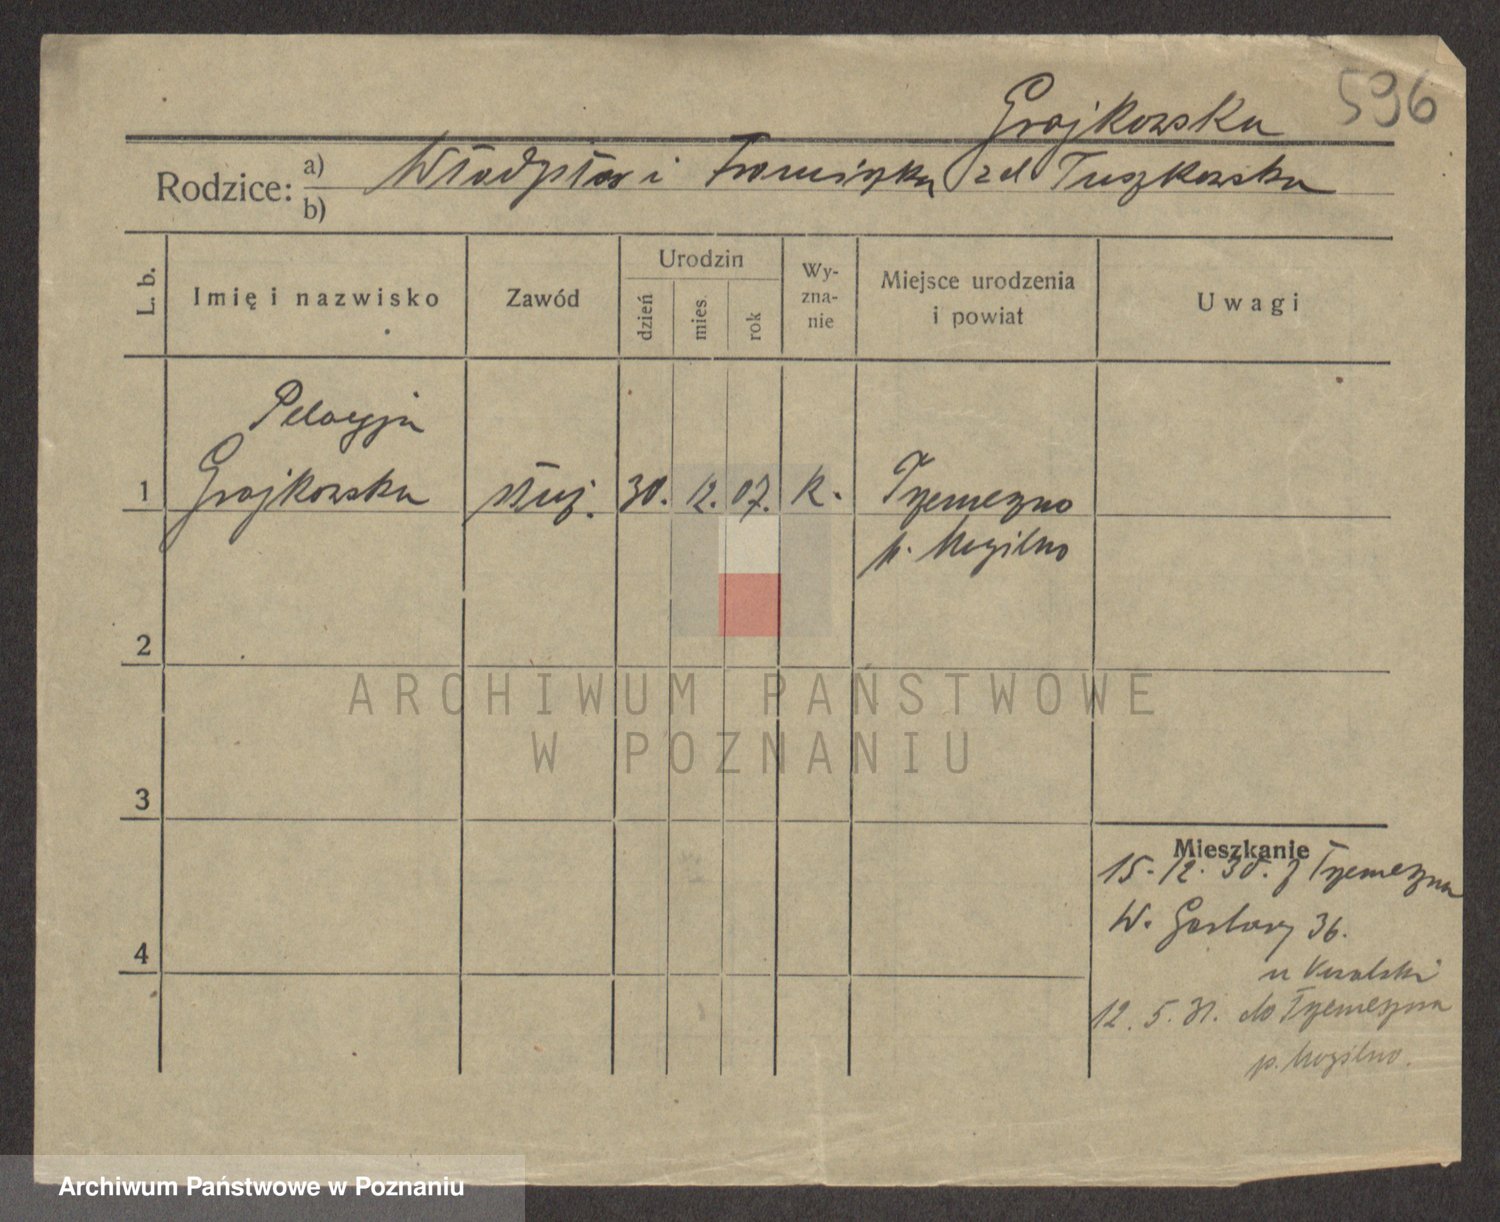 Grajkowska 596
Rodzice: a) b) Władysław i Franciszka zd Tuszkowska
L. b. Imię i nazwisko Zawód Urodzin dzień mies. rok Wy-zna-nie Miejsce urodzenia i powiat Uwagi
Pelagja
1 Grajkowska służ. 30. 12. 07. k. Trzemeszno
p. Mogilno
2
ARCHIWUM PAŃSTWOWE
W POZNANIU
3
Mieszkanie
15. 12. 30. z Trzemeszna
W. Garbary 36.
4
u
12. 5. 31. do Trzemeszna
p. Mogilno.
Archiwum Państwowe w Poznaniu